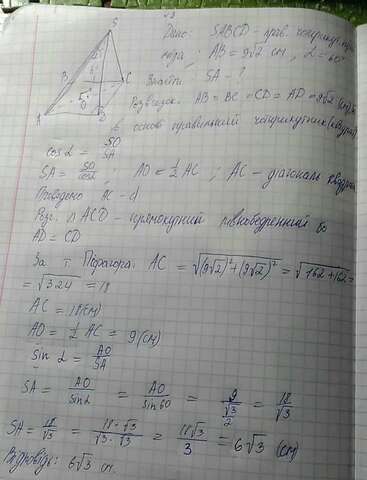 Дано: SABCD - прав. чотирикут. піра
міда; AB = 9√2 см, α = 60°
Знайти: SA - ?
Розвязок. AB = BC = CD = AD = 9√2 (см)
в основі правильний чотирикутник (квадрат)
S
B
C
A
D
O
cos α = SO/SA
SA = SO/cos α; AO = 1/2 AC; AC - діагональ квадрата
Проведемо AC - d
Розг. Δ ACD - прямокутний рівнобедренний бо
AD = CD
За т. Піфагора: AC = √(9√2)² + (9√2)² = √162 + 162 =
= √324 = 18
AC = 18 (см)
AO = 1/2 AC = 9 (см)
sin α = AO/SA
SA = AO/sin α = AO/sin 60 = 9/(√3/2) = 18/√3
SA = 18/√3 = 18 · √3/√3 · √3 = 18√3/3 = 6√3 (см)
Відповідь: 6√3 см.